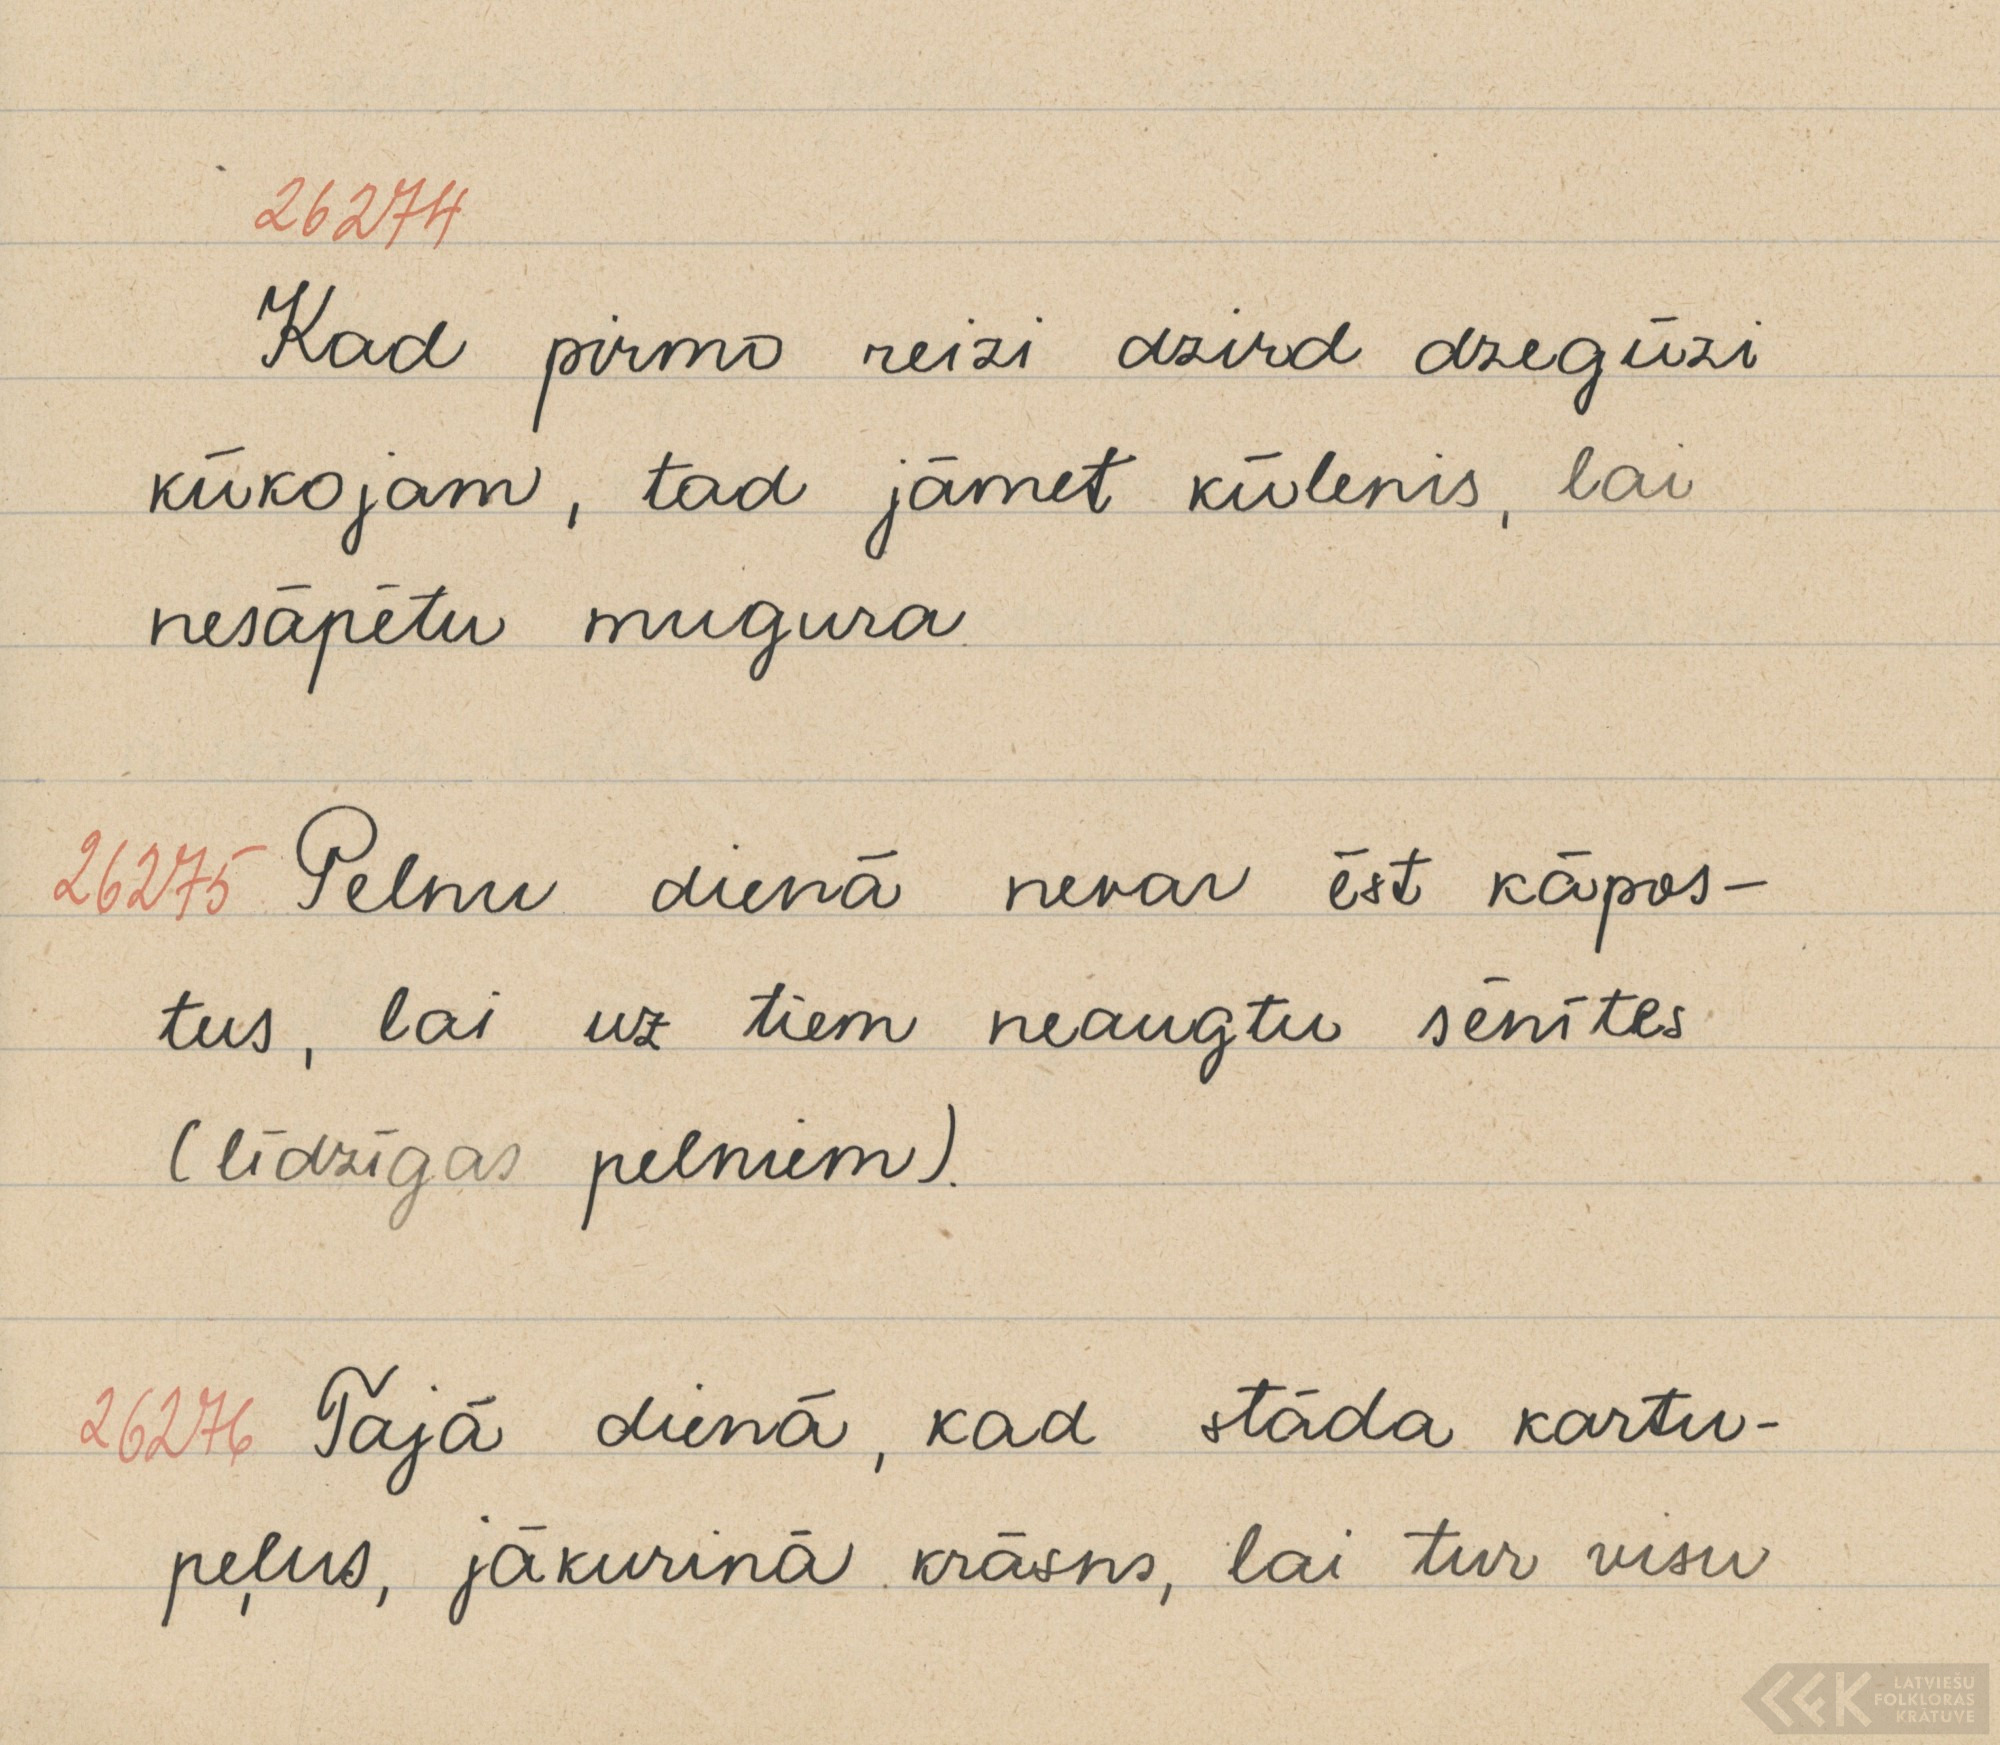 26274
Kad pirmo reizi dzird dzegūzi
kūkojam, tad jāmet kūlenis, lai
nesāpētu mugura
26275 Pelnu dienā nevar ēst kāpos-
tus, lai uz tiem neaugtu sēnītes
(līdzīgas pelniem).
26276 Tajā dienā, kad stāda kartu-
peļus, jākurinā krāsns, lai tur visu
LATVIEŠU
FOLKLORAS
KRĀTUVE